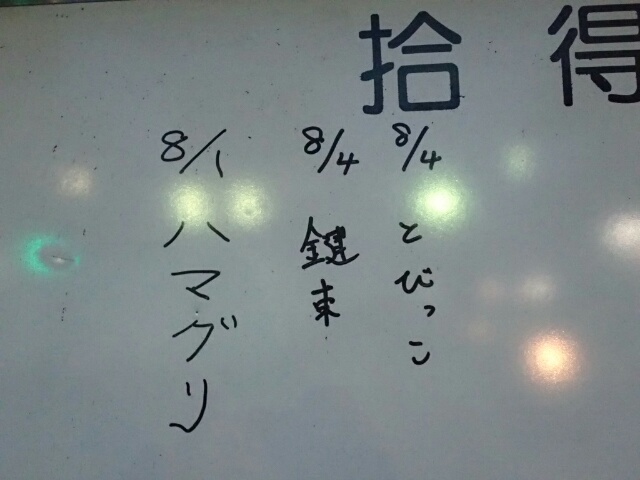 拾得
8/4 とびっこ
8/4 鍵束
8/1 ハマグリ